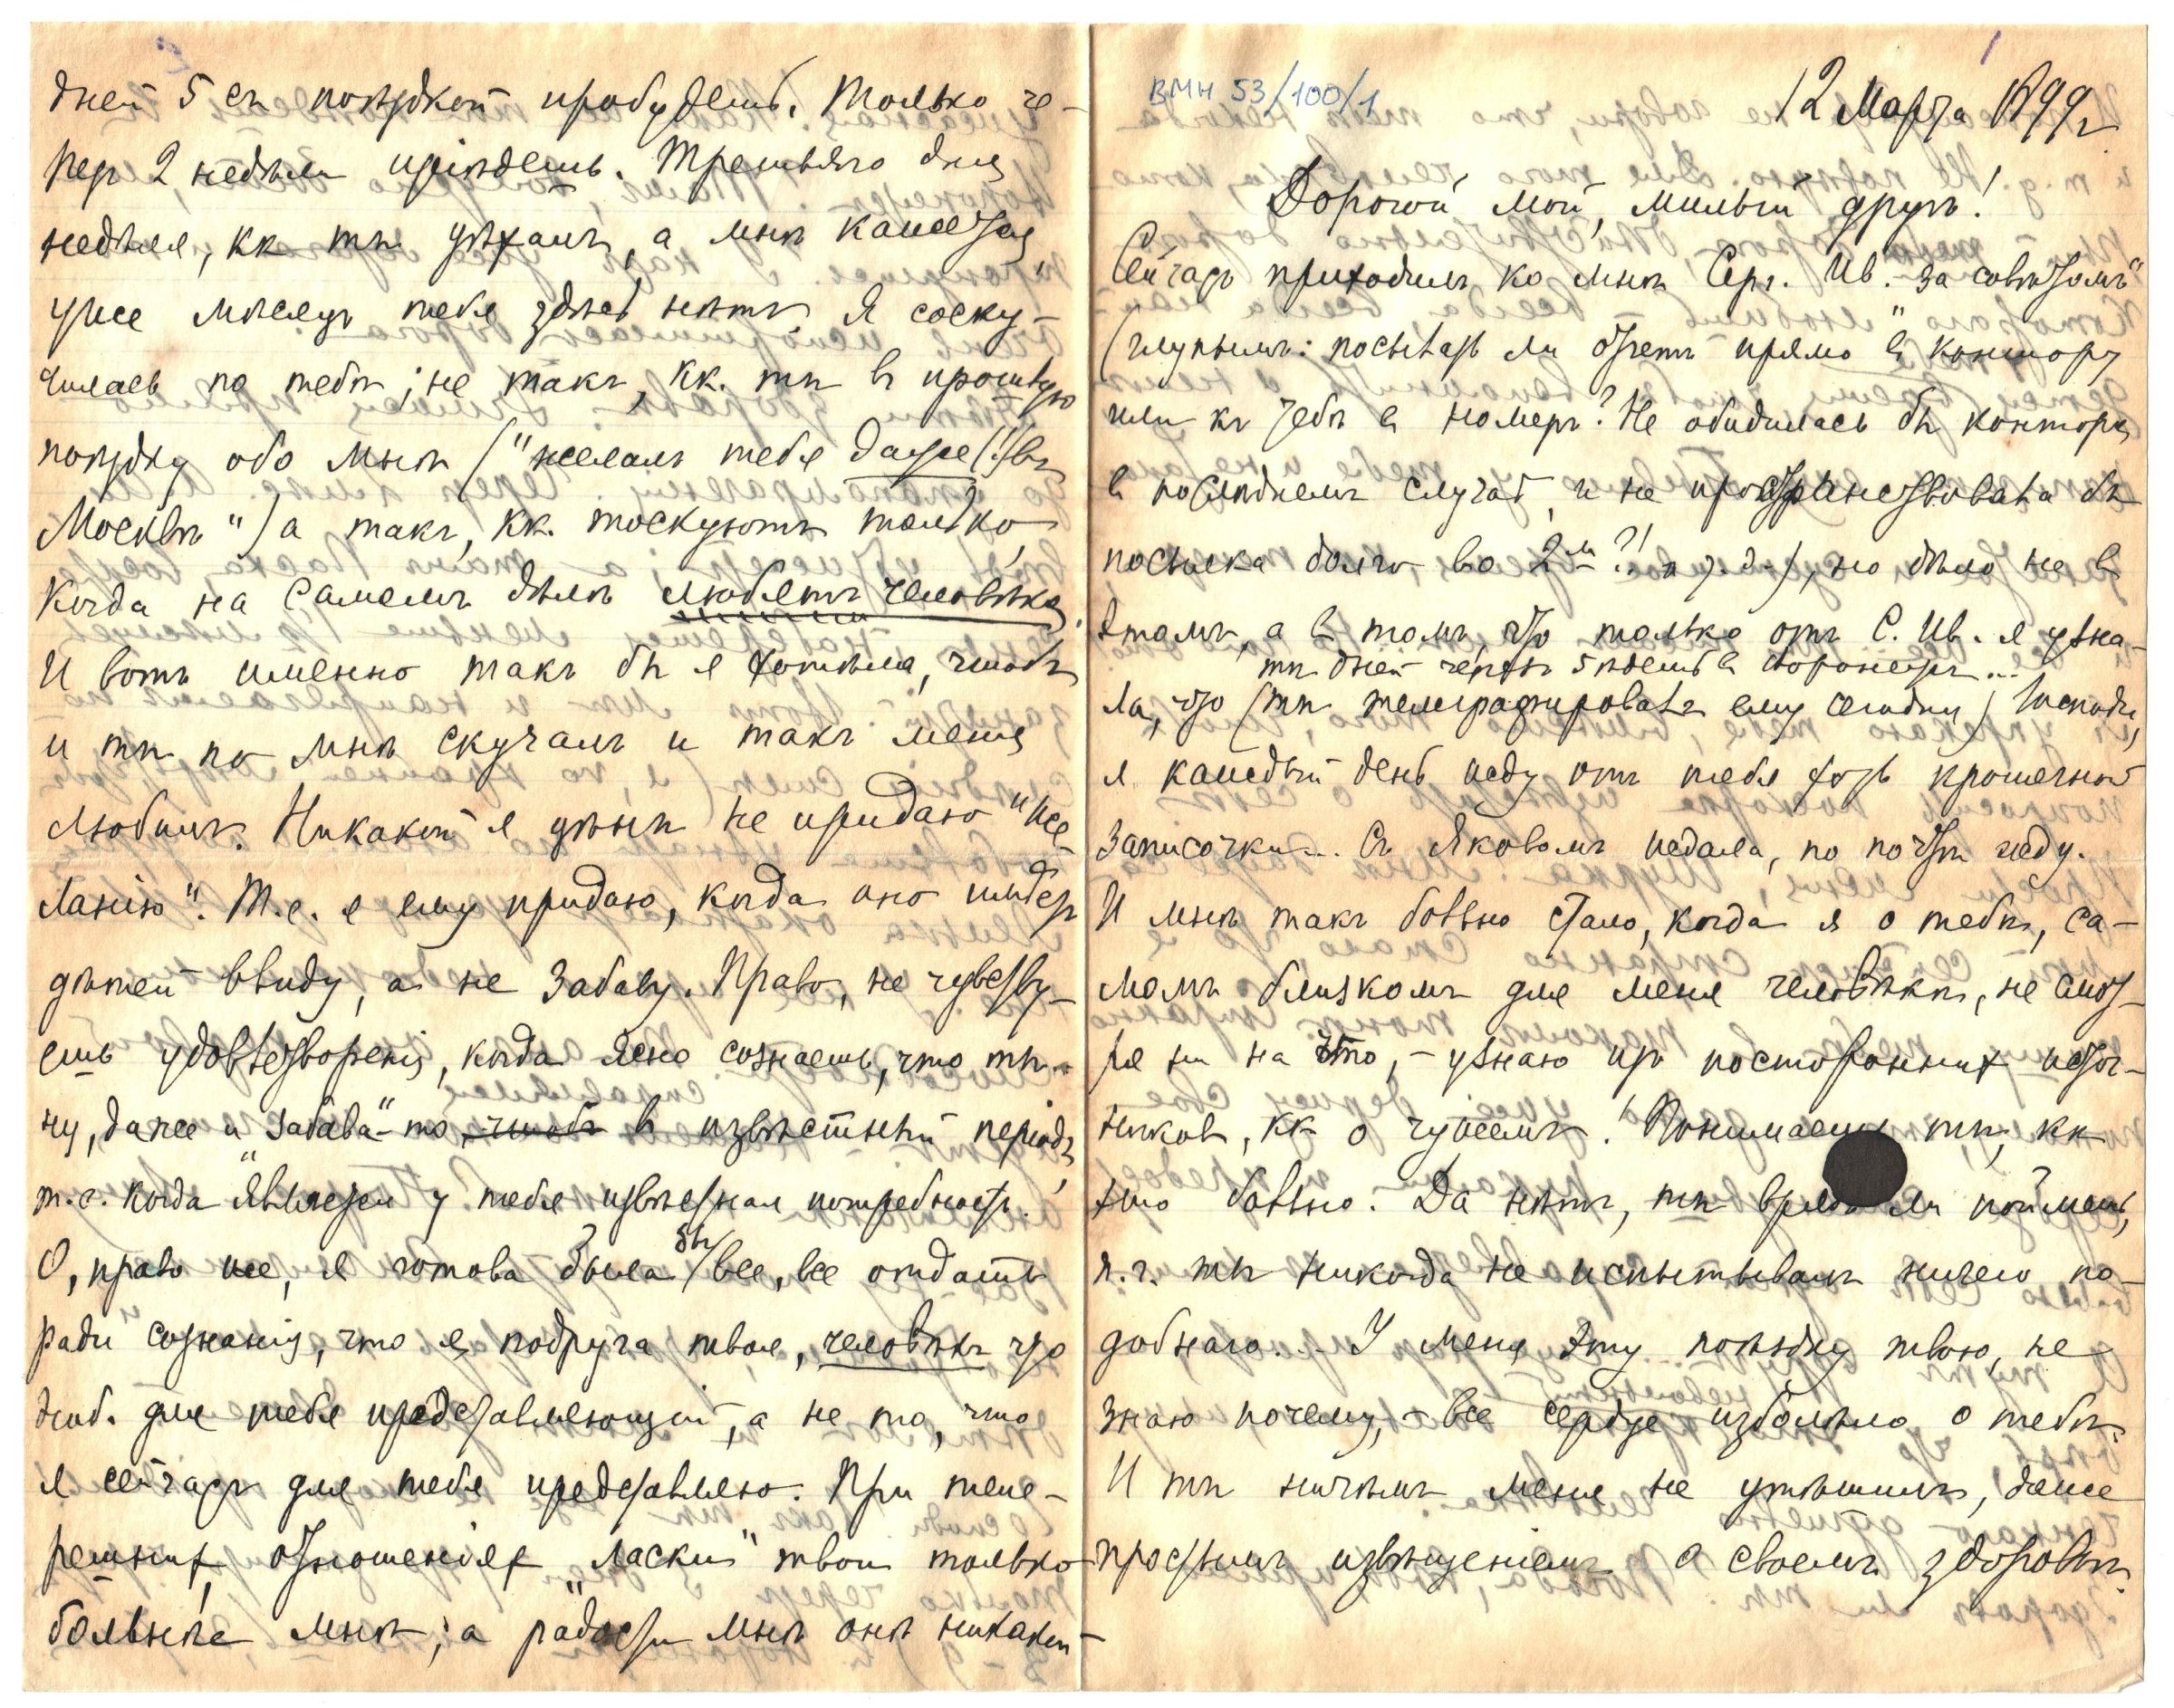 ВМН 53/100/1
12 Марта 1899 г
Дорогой мой, милый другъ!
Сейчасъ приходилъ ко мнѣ Серг. Ив. „за совѣтомъ"
(глупымъ: посылать ли отчетъ прямо в контору
или къ тебѣ в номеръ? Не обидилась бы контора
в послѣднемъ случаѣ, и не пространствовала бы
посылка долго во 2мъ?! и т.д.), но дѣло не в
этомъ, а в томъ, что только отъ С. Ив. я узна-
ты дней черезъ 5 ѣдешь в Воронежъ...
ла, что (ты телеграфировалъ ему сегодня) Господи,
я каждый день жду отъ тебя хоть крошечной
записочки... Съ Яковомъ ждала, по почтѣ жду.
И мнѣ такъ больно стало, когда я о тебѣ, са-
момъ близкомъ для меня человѣкѣ, не смот-
ря ни на что, - узнаю изъ постороннихъ источ-
никовъ, кк о чужомъ! Понимаешь ты, кк
это больно. Да нѣтъ, ты врядъ ли поймешь,
п.ч. ты никогда не испытывалъ ничего по-
добнаго... У меня эту поѣздку твою, не
знаю почему, - все сердце изболѣло о тебѣ.
И ты ничѣмъ меня не утѣшилъ, даже
простымъ извѣщеніемъ о своемъ здоровьѣ.
дней 5 съ поѣздкой пробудешь. Только че-
рез 2 недѣли пріѣдешь. Третьяго дня
недѣля, кк ты уѣхалъ, а мнѣ кажется,
уже мѣсяцъ тебя здѣсь нѣтъ. Я соску-
чилась по тебѣ; не такъ, кк. ты в прошлую
поѣздку обо мнѣ ("желалъ тебя даже (!) въ
Москвѣ") а такъ, кк. тоскуютъ только,
когда на самомъ дѣлѣ любятъ человѣка.
И вотъ именно такъ бы я хотѣла, чтобъ
и ты по мнѣ скучалъ и такъ меня
любилъ. Никакой я цѣны не придаю "же-
ланію". Т.е. я ему придаю, когда оно имѣетъ
дѣтей ввиду, а не забаву. Право, не чувству-
ешь удовлетворенія, когда ясно сознаешь, что ты..
ну, далее и „забава"-то, чтобъ в извѣстный періодъ,
т.е. когда является у тебя извѣстная потребность.
О, право же, я готова была бы все, все отдать
ради сознанія, что я, подруга твоя, человѣкъ что
либ. для тебя представляющій, а не то, что
я сейчасъ для тебя представляю. При тепе-
решнихъ отношеніях „ласки" твои только
больнѣе мнѣ; а радости мнѣ онѣ никакой